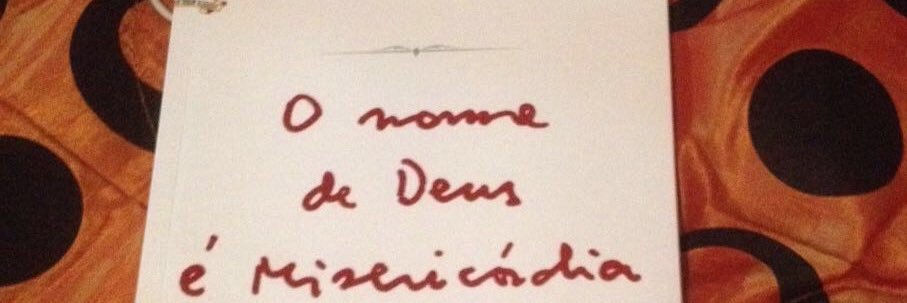 O nome
de Deus
é Misericórdia